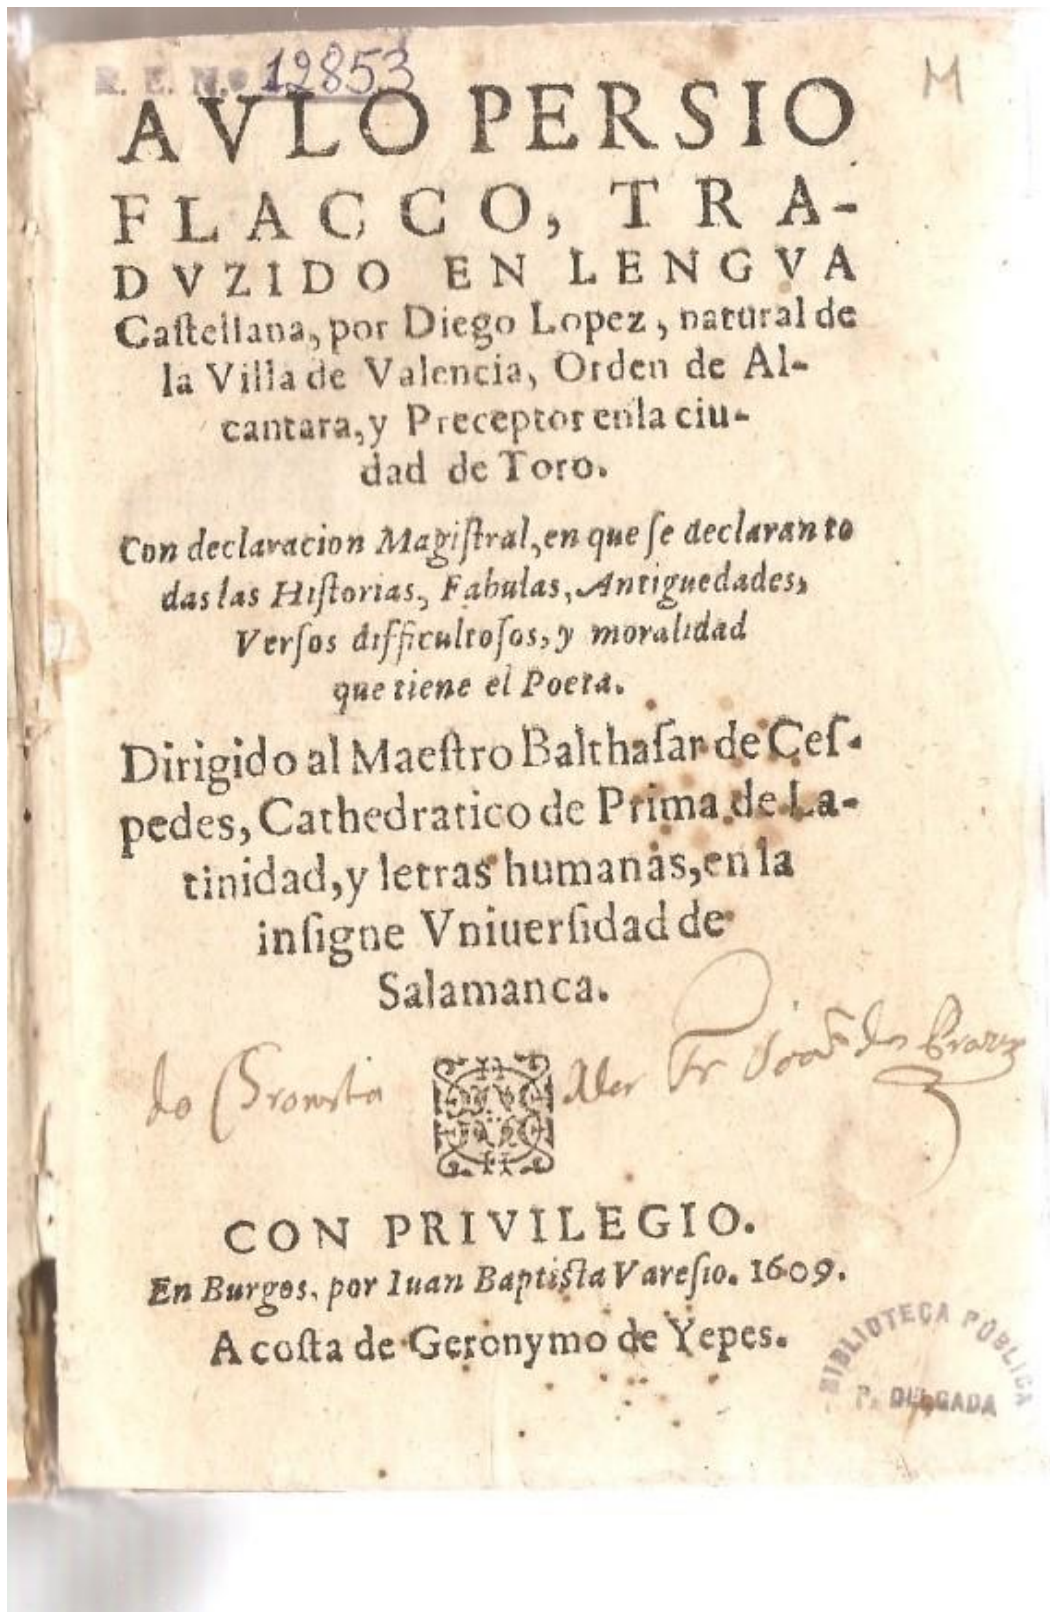 R. E. N.º 12853
M
AVLO PERSIO
FLACCO, TRA-
DVZIDO EN LENGVA
Caſtellana, por Diego Lopez, natural de
la Villa de Valencia, Orden de Al-
cantara, y Preceptor en la ciu-
dad de Toro.
Con declaracion Magiſtral, en que ſe declaran to
das las Hiſtorias, Fabulas, Antiguedades,
Verſos difficultoſos, y moralidad
que tiene el Poeta.
Dirigido al Maeſtro Balthaſar de Ceſ-
pedes, Cathedratico de Prima de La-
tinidad, y letras humanas, en la
inſigne Vniuerſidad de
Salamanca.
CON PRIVILEGIO.
En Burgos, por Iuan Baptiſta Vareſio. 1609.
A coſta de Geronymo de Yepes.
BIBLIOTECA PÚBLICA
P. DELGADA